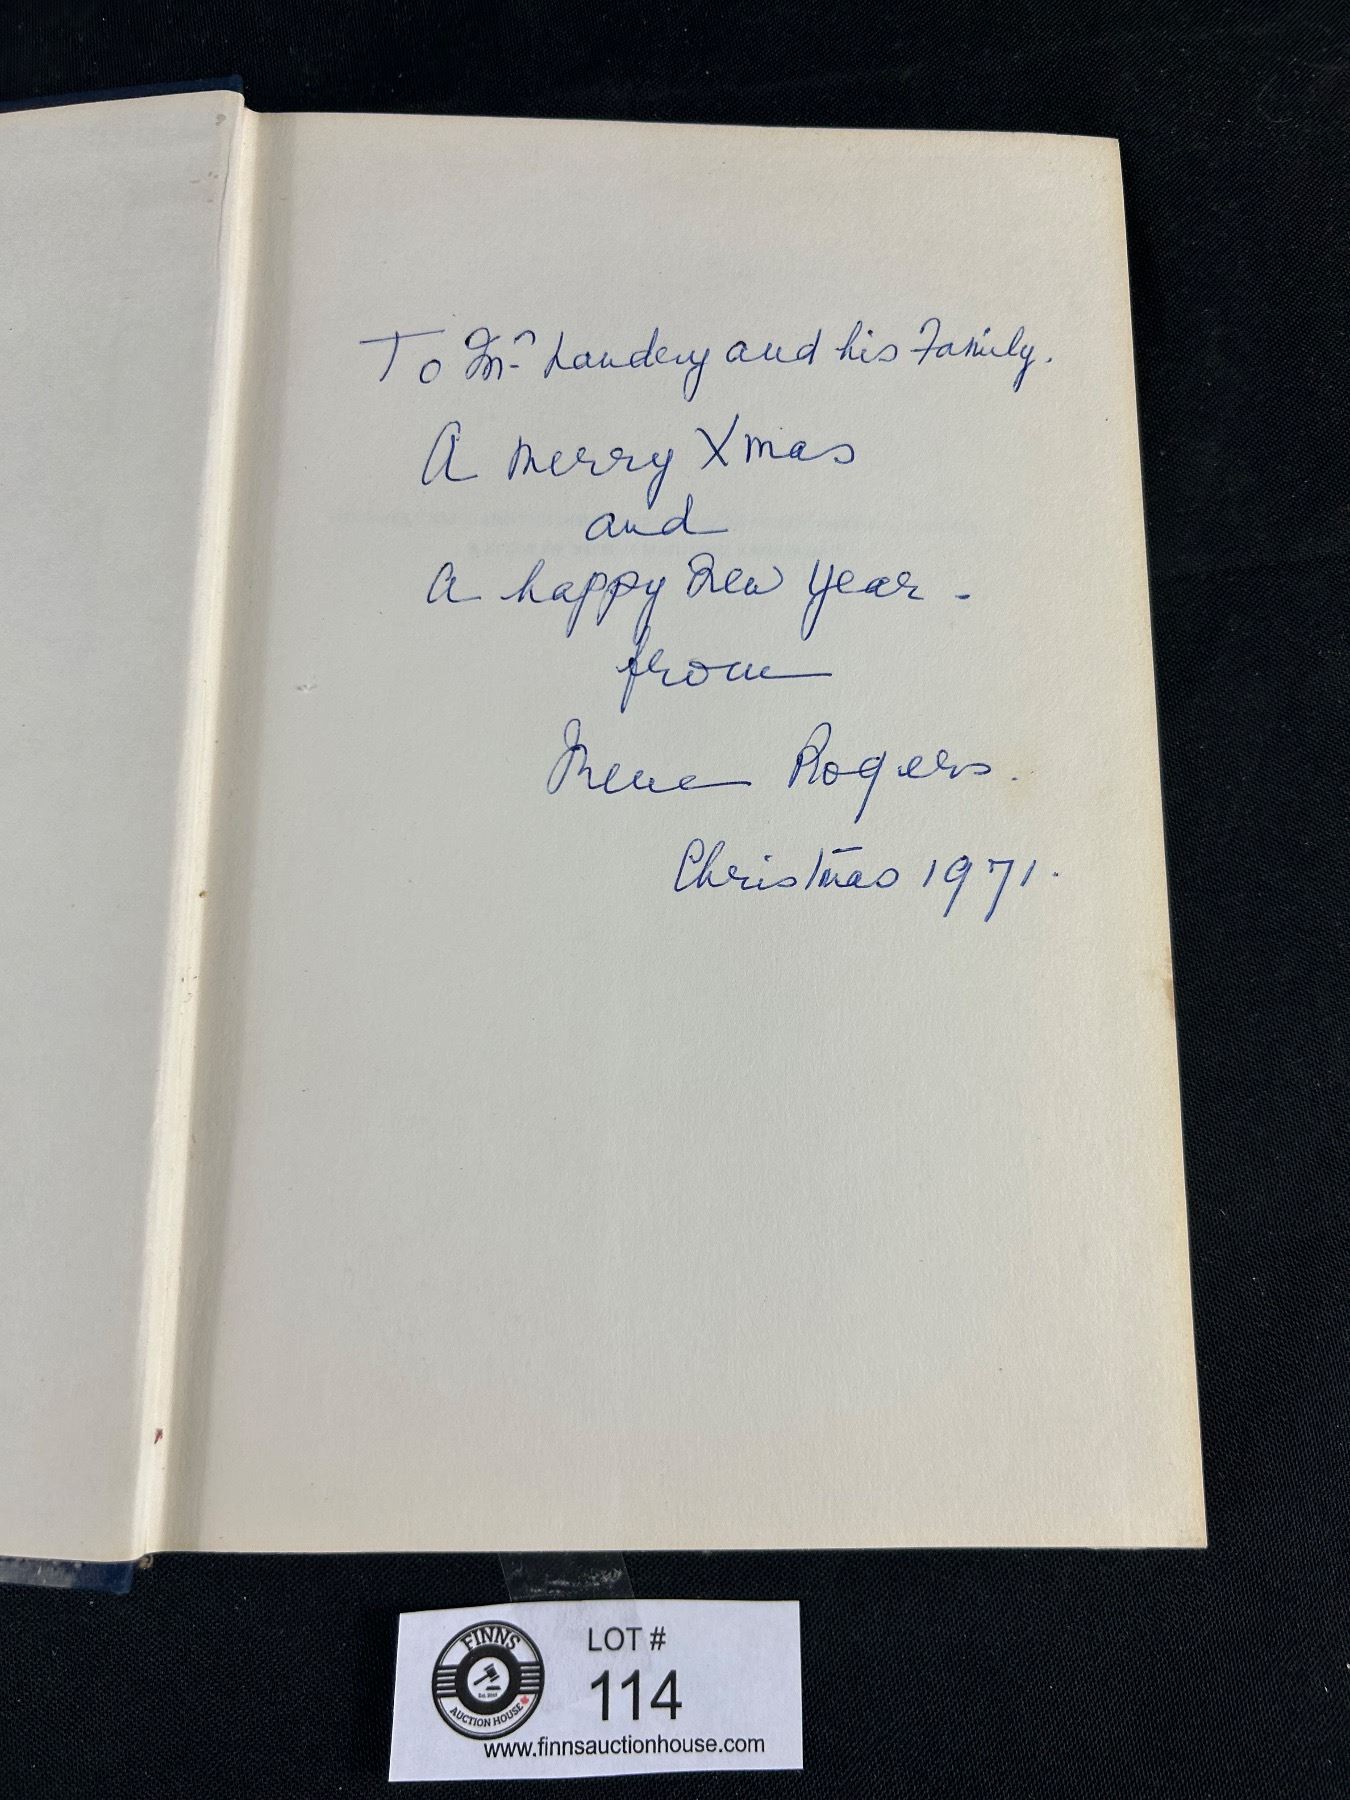 To Mr Landery and his Family.
A merry Xmas
and
A happy New Year -
from
Irene Rogers.
Christmas 1971.
FINNS
Est. 2015
AUCTION HOUSE
LOT #
114
www.finnsauctionhouse.com